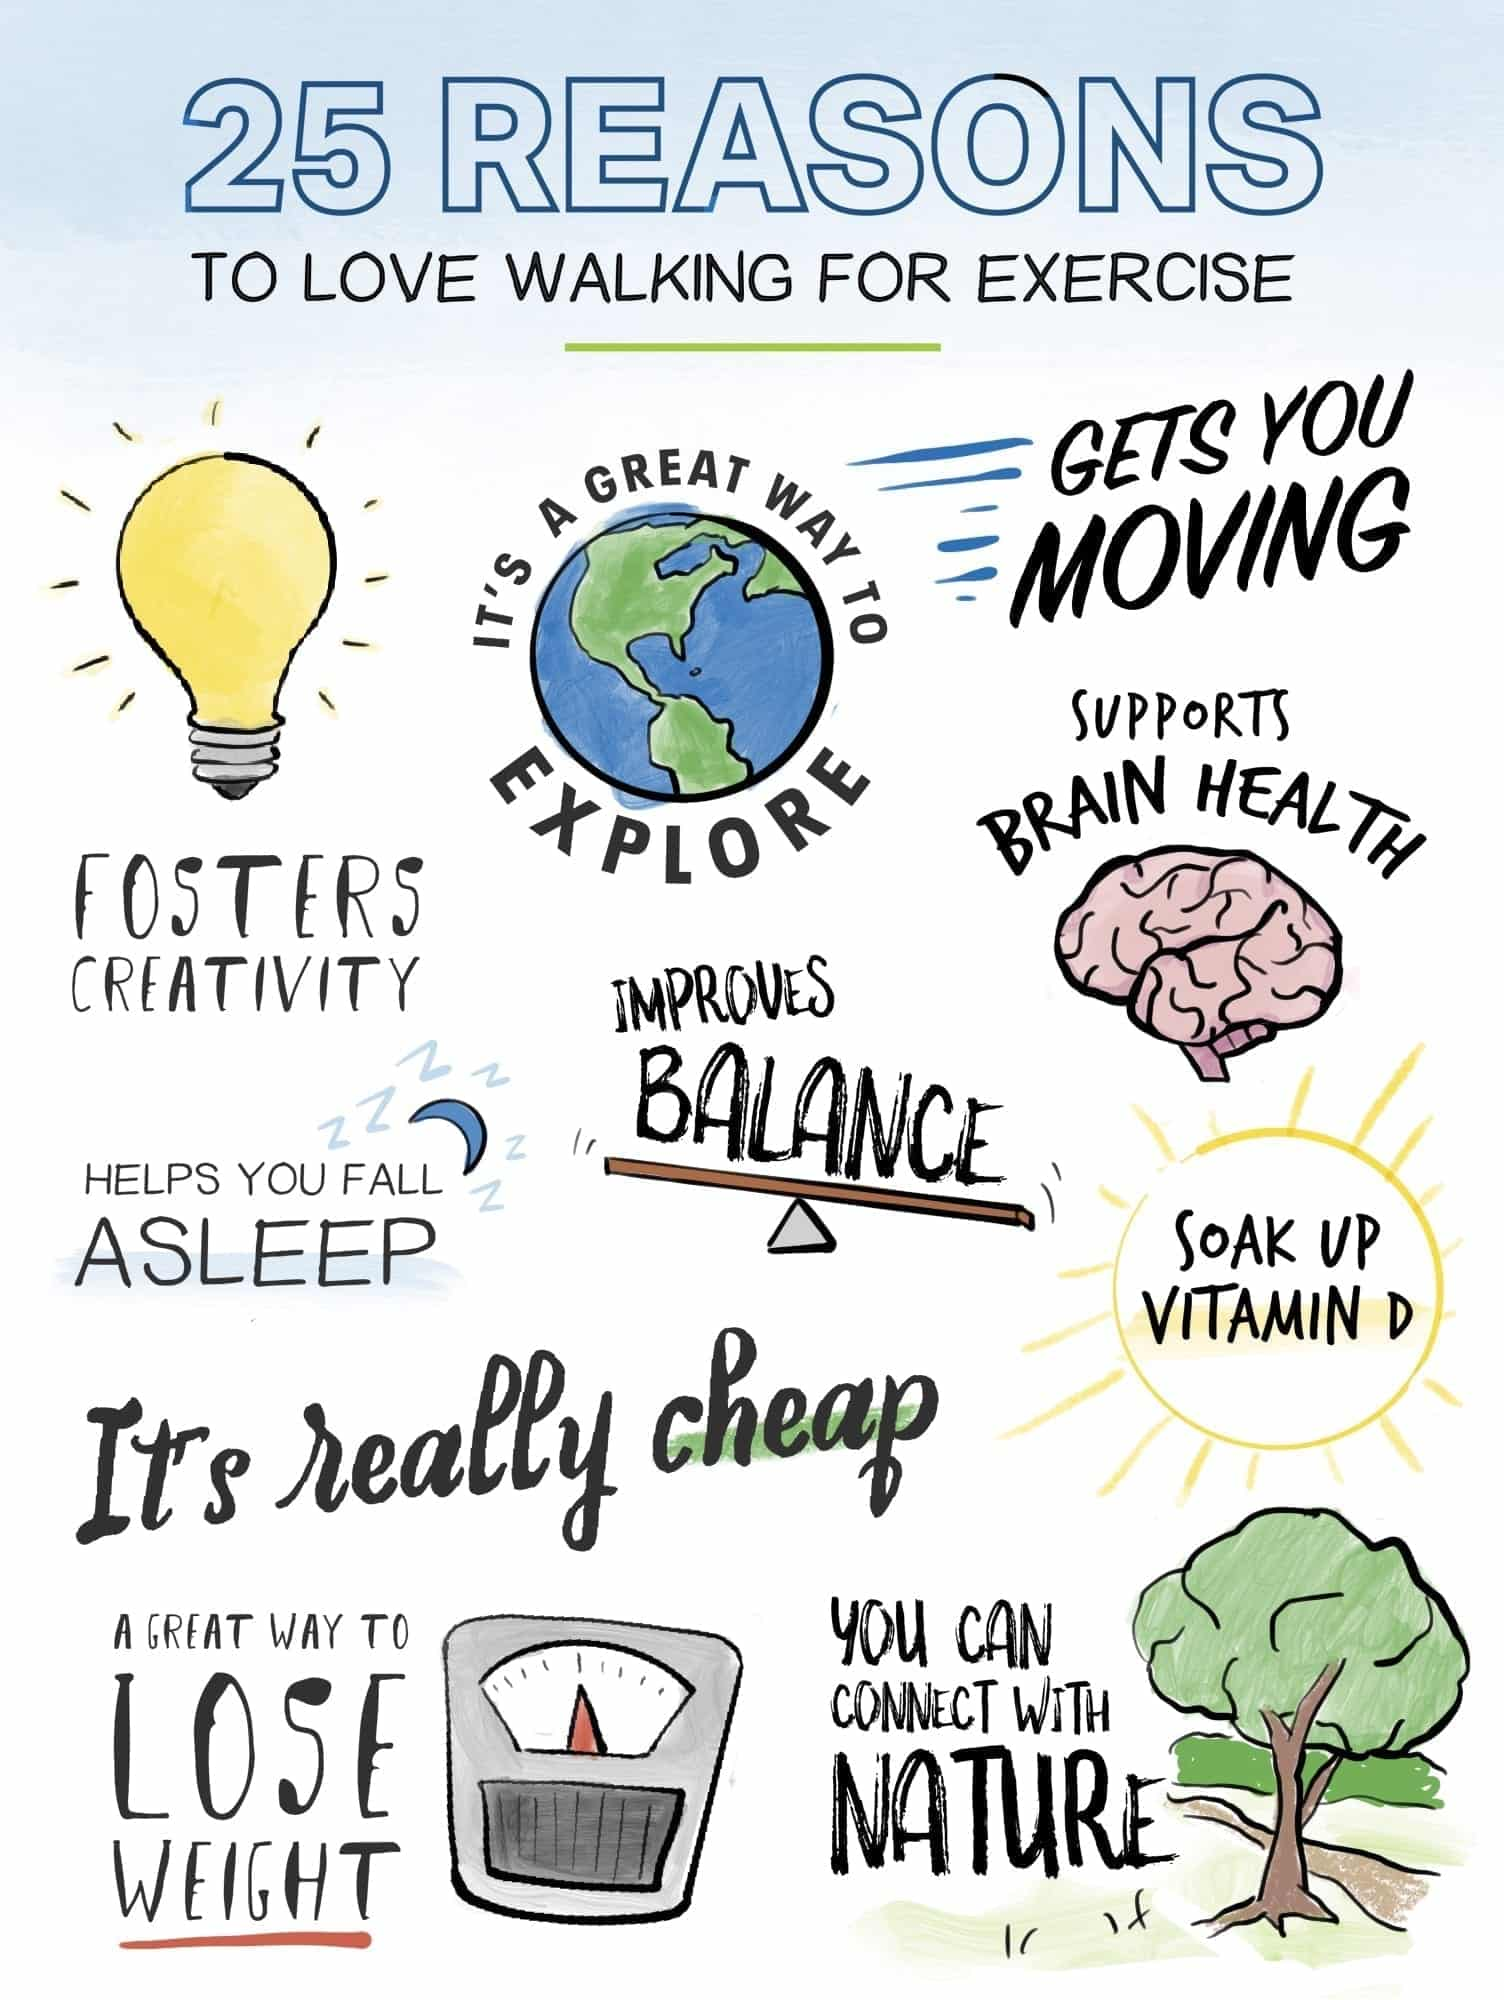 25 REASONS
TO LOVE WALKING FOR EXERCISE
GETS YOU
MOVING
IT'S A GREAT WAY TO
EXPLORE
FOSTERS
CREATIVITY
SUPPORTS
BRAIN HEALTH
IMPROVES
BALANCE
Z Z Z Z Z Z
HELPS YOU FALL
ASLEEP
SOAK UP
VITAMIN D
It's really cheap
A GREAT WAY TO
LOSE
WEIGHT
YOU CAN
CONNECT WITH
NATURE